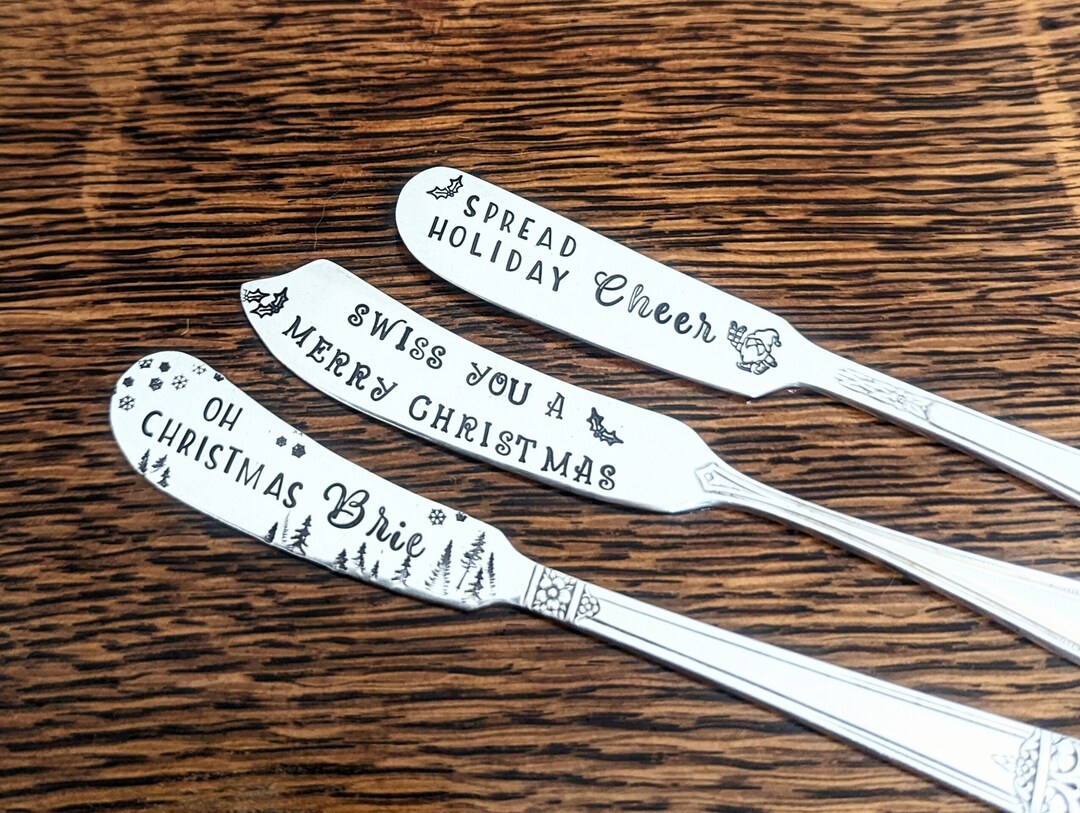 SPREAD
HOLIDAY Cheer
SWISS YOU A
MERRY CHRISTMAS
OH
CHRISTMAS Brie